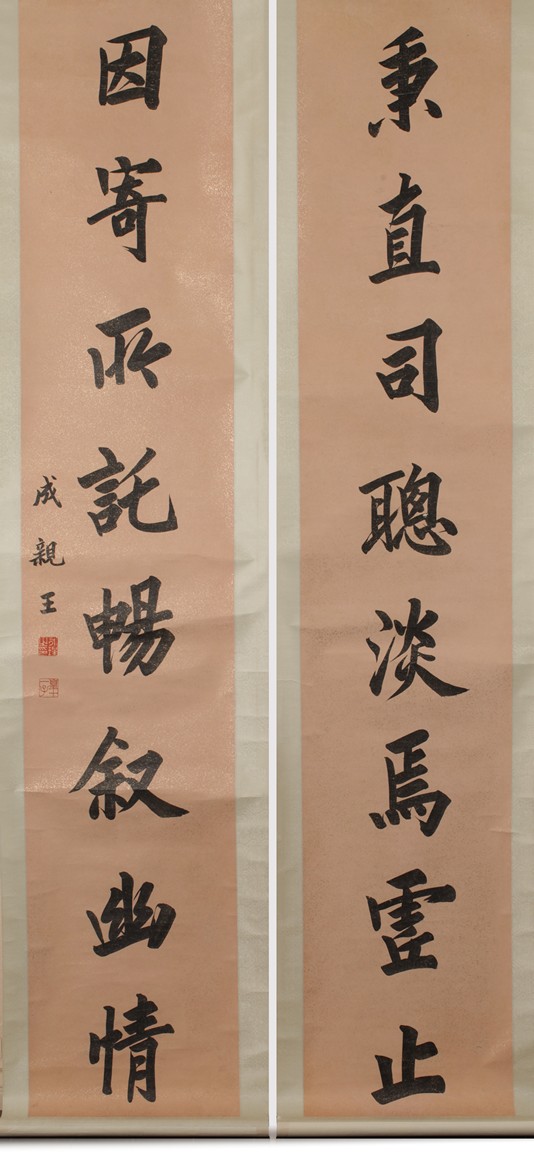 秉直司聰淡焉虛止
因寄所託暢叙幽情
成親王